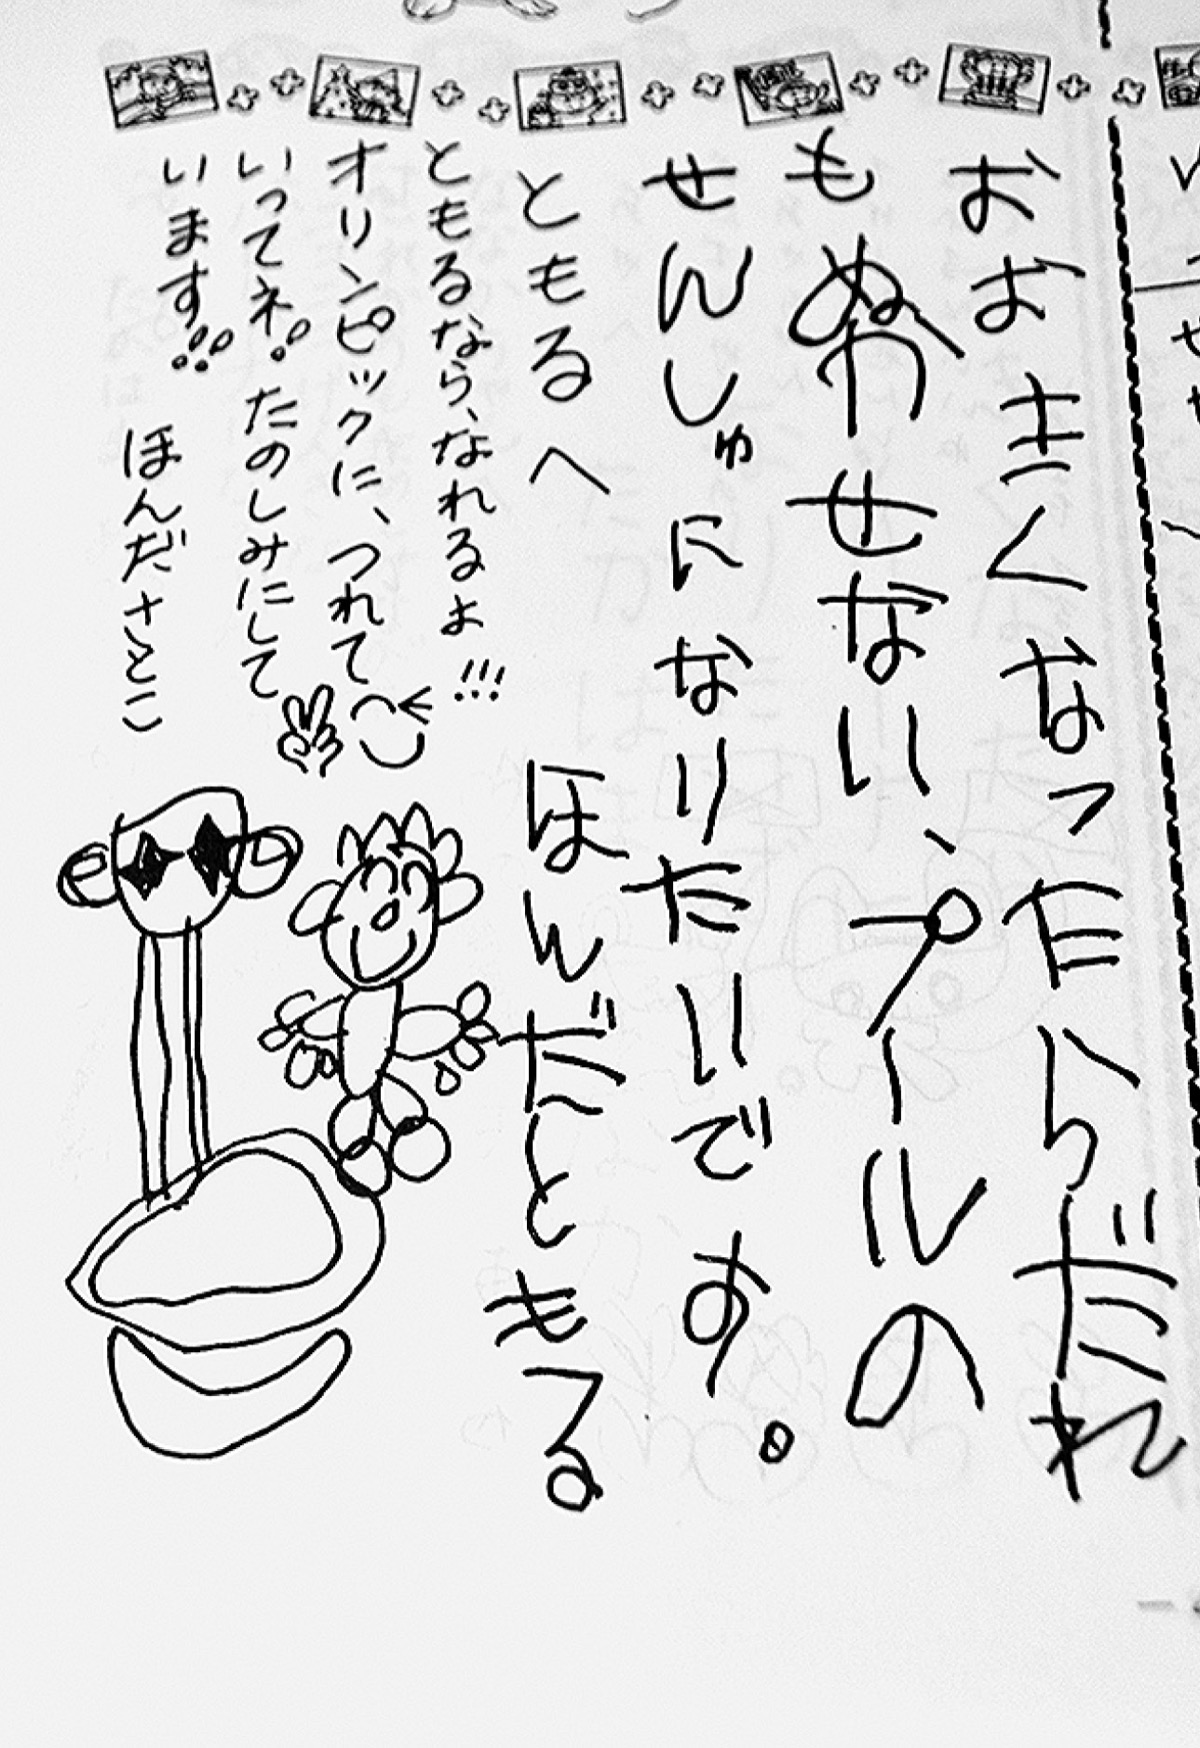 おおきくなったらだれ
もぬかせない、プールの
せんしゅになりたいです。
ほんだともる
ともるへ
ともるなら、なれるよ!!!
オリンピックに、つれて
いってネ!たのしみにして
います!!
ほんださとこ